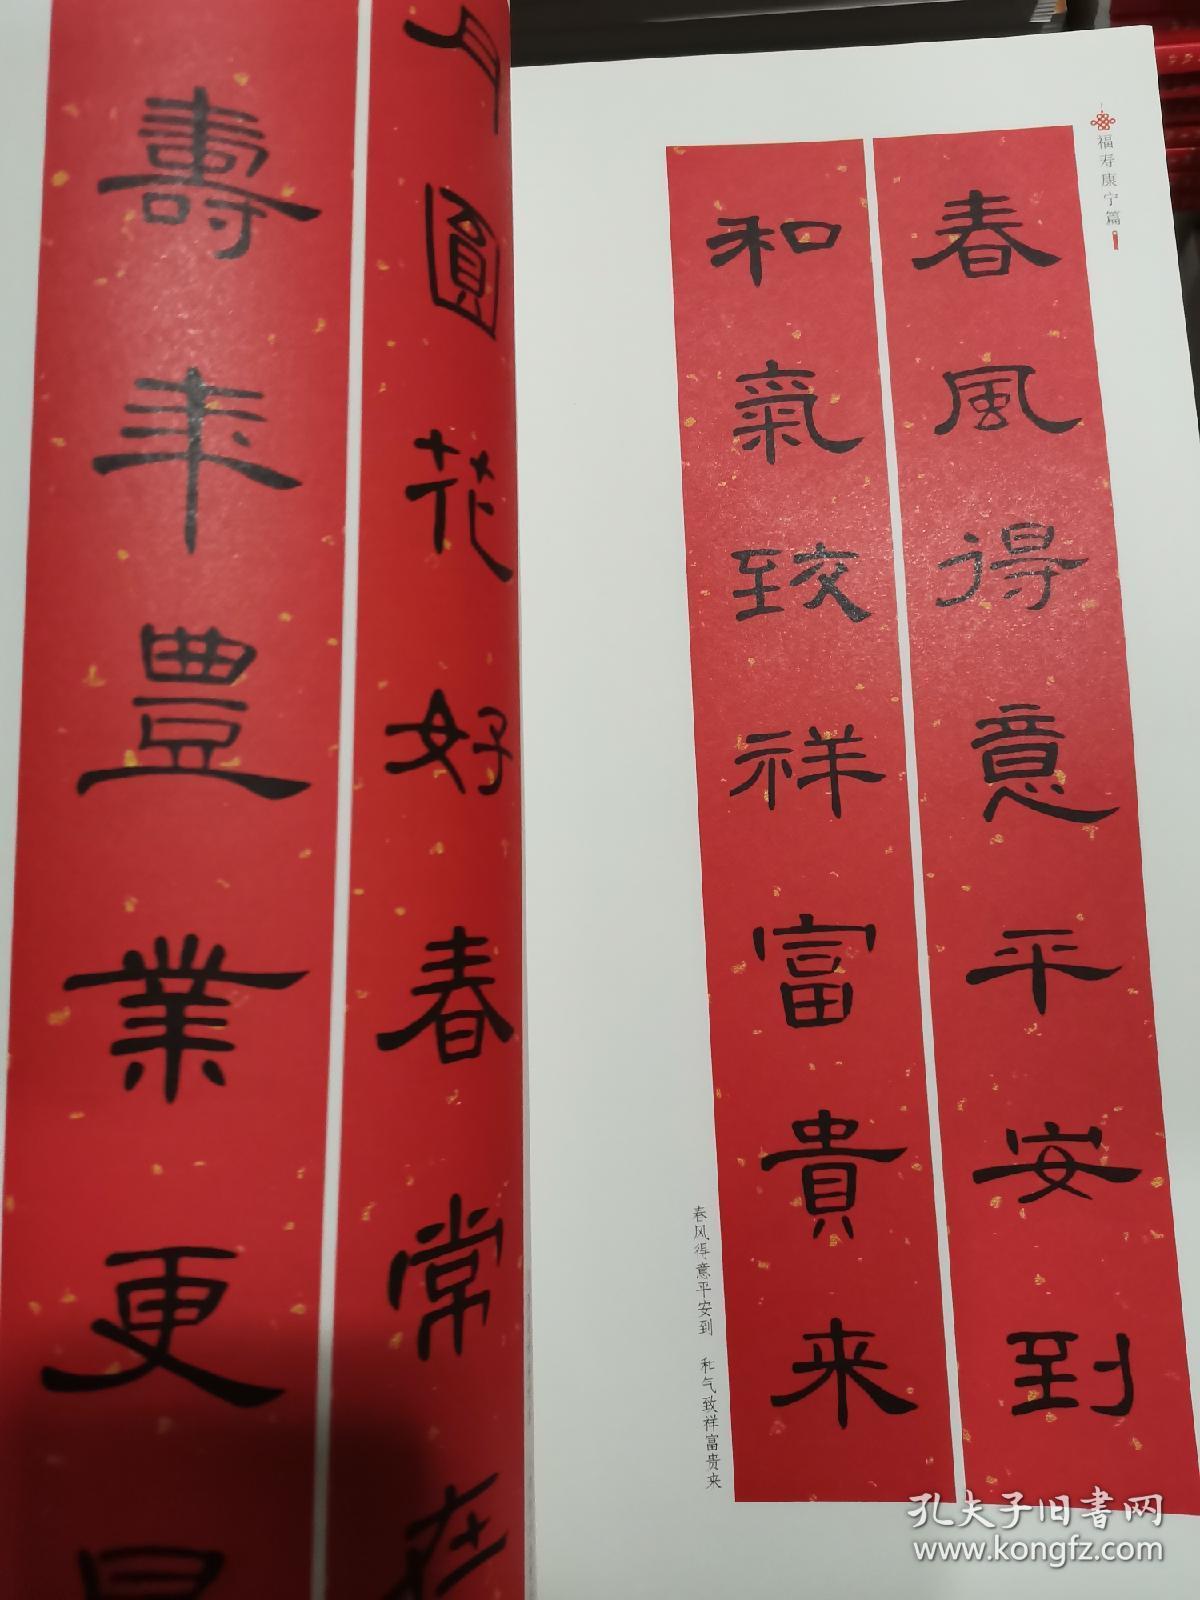 福寿康宁篇
春風得意平安到
和氣致祥富貴来
春风得意平安到 和气致祥富贵来
月圓花好春常在
壽年豊業更
孔夫子旧书网
www.kongfz.com